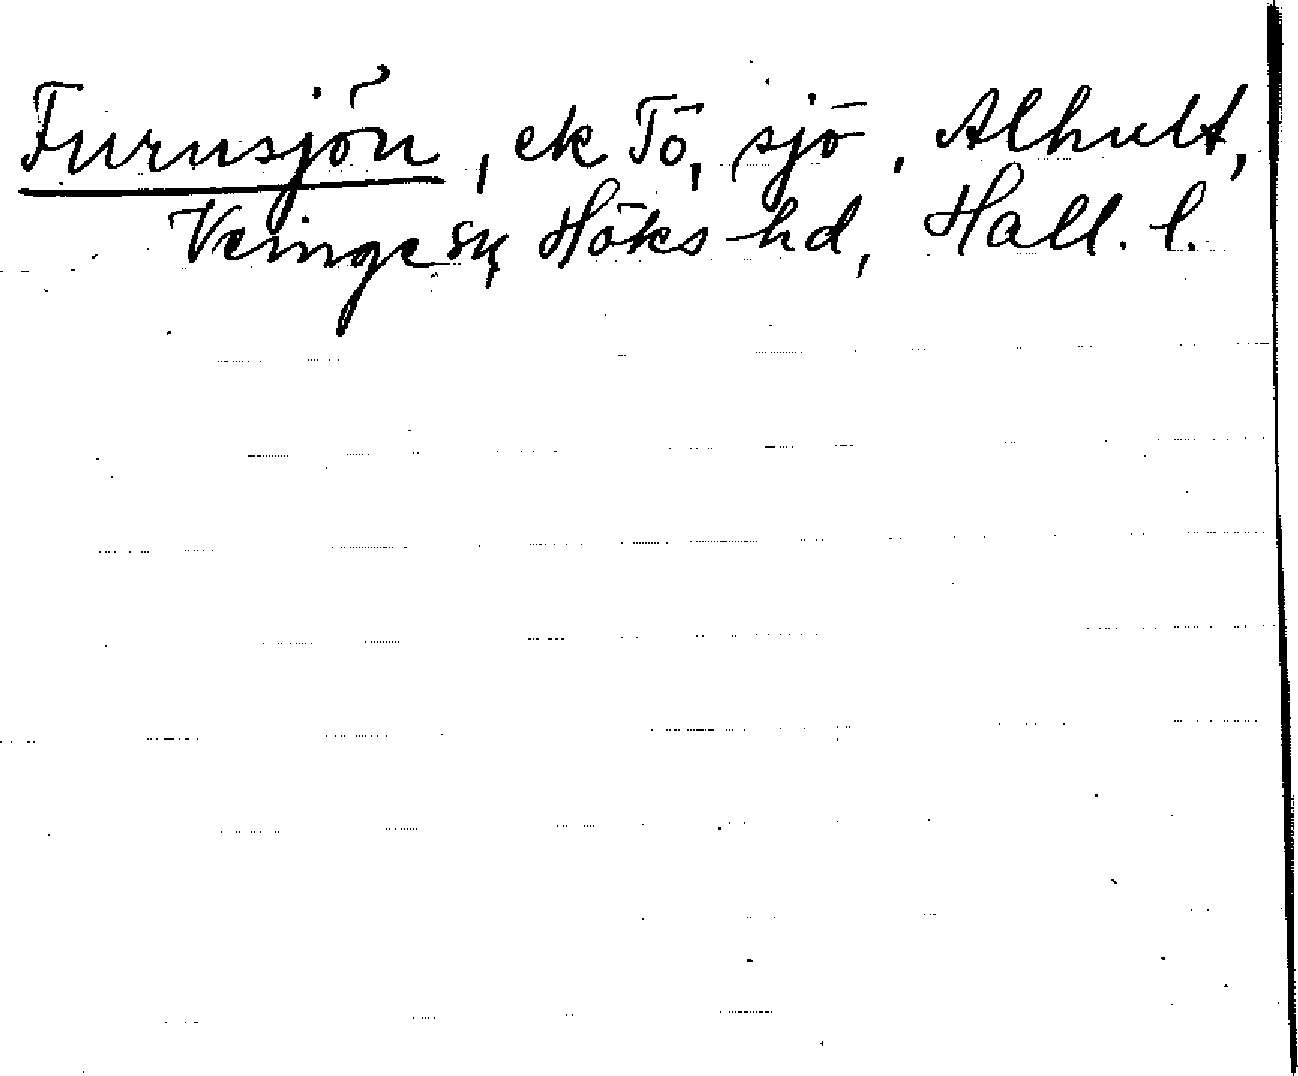 Furusjön, ek Tö, sjö, Alhult,
Veinge sn, Höks hd, Hall. l.